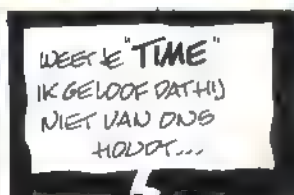 WEET JE "TIME"
IK GELOOF DAT HIJ
NIET VAN ONS
HOUDT...